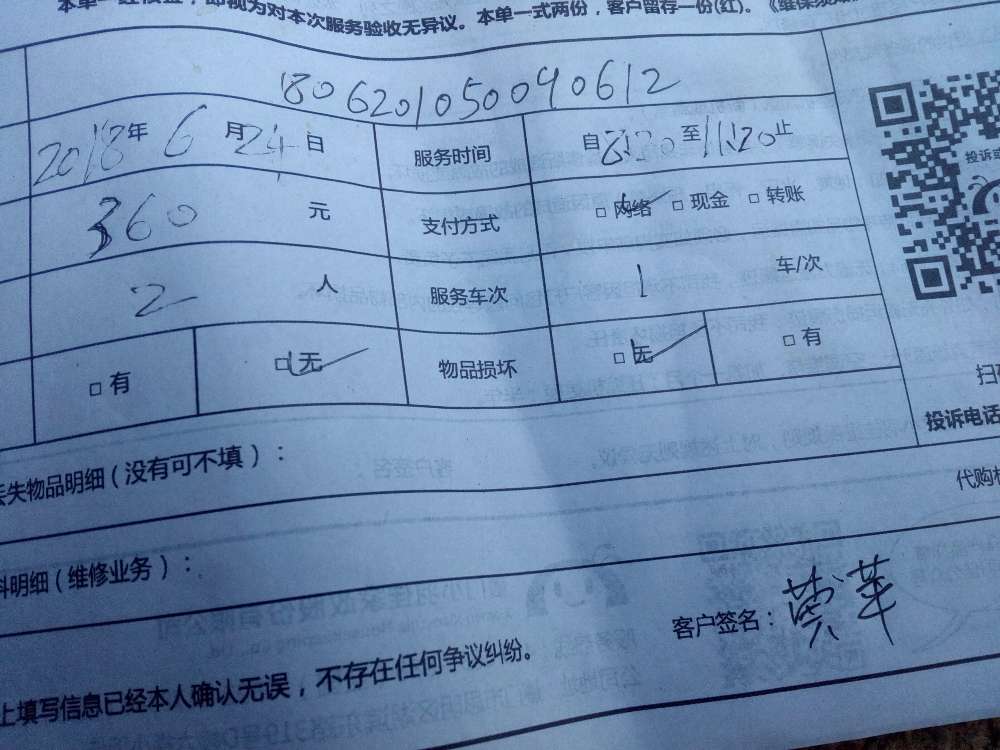 本单一经核盖，即视为对本次服务验收无异议。本单一式两份，客户留存一份(红)。《维保须知
1806201050040612
2018年 6 月 24 日 服务时间 自 8:20 至 11:20 止
360 元 支付方式 □ 网络 □ 现金 □ 转账
2 人 服务车次 1 车/次
□ 有 □ 无 物品损坏 □ 无 □ 有
投诉
扫
投诉电话
丢失物品明细（没有可不填）：
代购
料明细（维修业务）：
客户签名：
上填写信息已经本人确认无误，不存在任何争议纠纷。